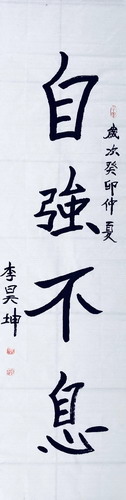 歲次癸卯仲夏
自強不息
李昊坤